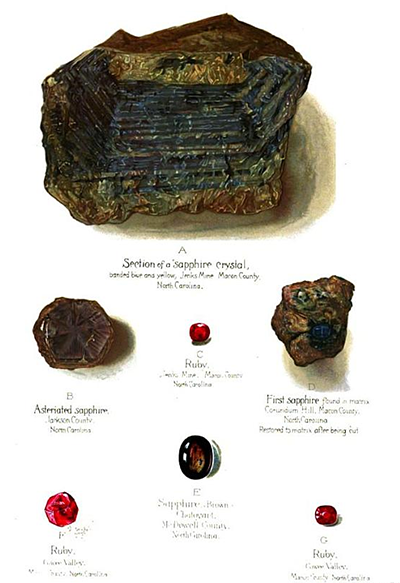 A
Section of a sapphire crystal,
banded blue and yellow, Jenks Mine Macon County,
North Carolina.
B
Asteriated sapphire.
Jackson County.
North Carolina
C
Ruby.
Jenks Mine, Macon County
North Carolina
D
First sapphire found in matrix
Corundum Hill, Macon County.
North Carolina
Restored to matrix after being cut
E
Sapphire, Brown
McDowell County,
North Carolina.
F
Ruby.
Cowee Valley,
County North Carolina
G
Ruby.
Cowee Valley,
Macon County North Carolina